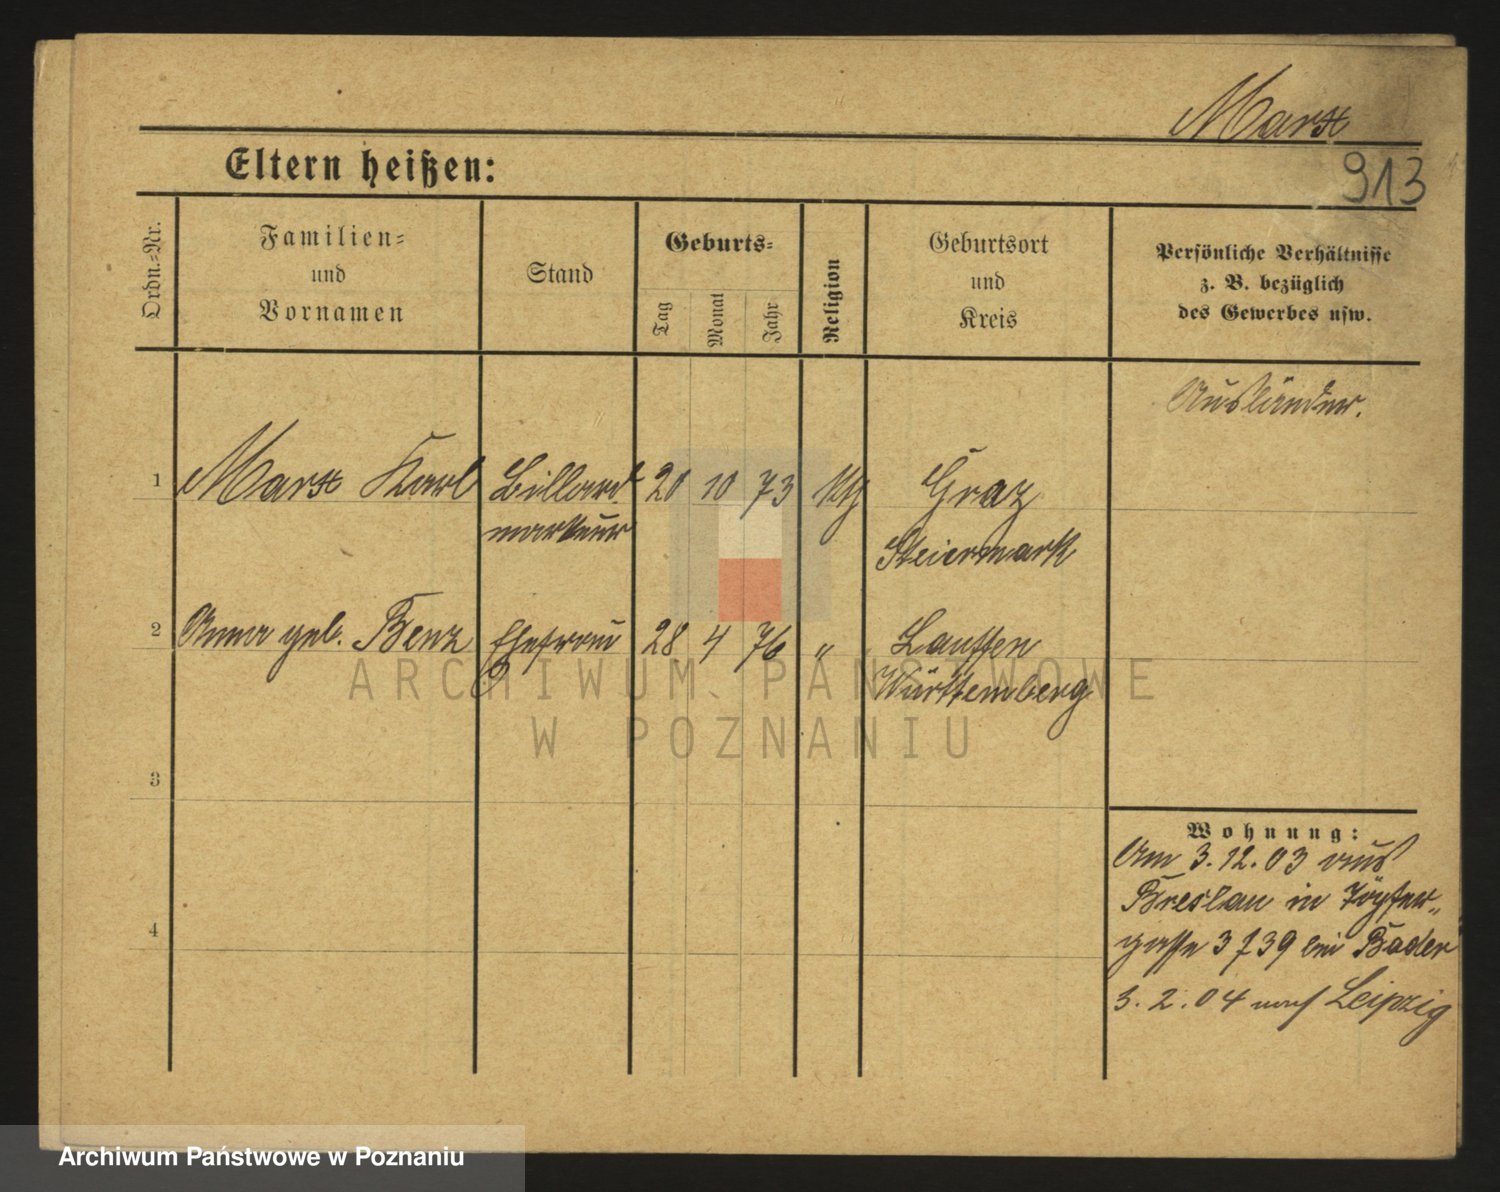 Marx
913
Eltern heißen:
Ordn.-Nr.
Familien-
und
Vornamen
Stand
Geburts-
Tag
Monat
Jahr
Religion
Geburtsort
und
Kreis
Persönliche Verhältnisse
z. B. bezüglich
des Gewerbes usw.
Ausländer.
1 Marx Karl Billard 20 10 73 Graz
markeur
Steiermark
2 Anna geb. Benz Ehefrau 28 4 76 " Lauffen
Württemberg
ARCHIWUM PAŃSTWOWE
W POZNANIU
3
4
Wohnung:
Am 3.12.03 aus
Breslau in Töpfer„
gasse 3 / 39 bei Bader
3.2.04 nach Leipzig
Archiwum Państwowe w Poznaniu